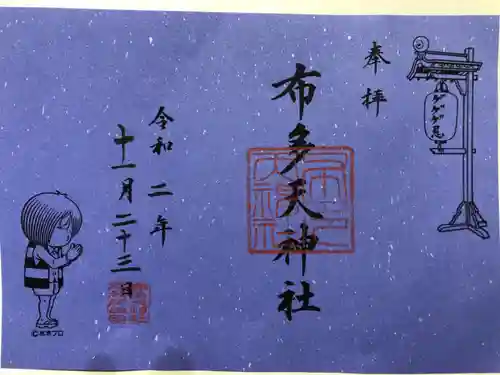 奉拝
ゲゲゲ忌
布多天神社
令和二年
十一月二十三日
©水木プロ